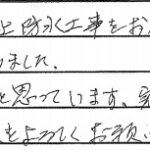 上防水工事をお
ました.
と思っています、家
もよろしくお願い